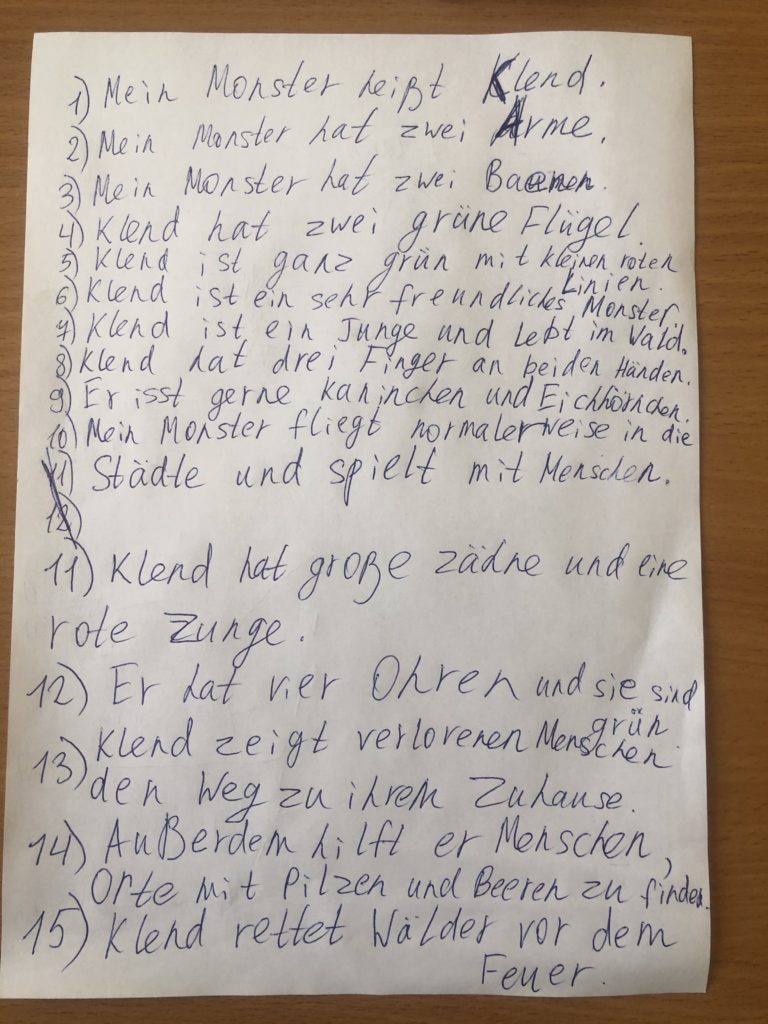 1) Mein Monster heißt Klend.
2) Mein Monster hat zwei Arme.
3) Mein Monster hat zwei
4) Klend hat zwei grüne Flügel.
5) Klend ist ganz grün mit kleinen roten
Linien.
6) Klend ist ein sehr freundliches Monster
7) Klend ist ein Junge und lebt im Wald.
8) Klend hat drei Finger an beiden Händen.
9) Er isst gerne Kaninchen und Eichhörnchen.
10) Mein Monster fliegt normalerweise in die
11) Städte und spielt mit Menschen.
12)
11) Klend hat große zädne und eine
rote Zunge.
12) Er hat vier Ohren und sie sind
grün
13) Klend zeigt verlorenen Menschen
den Weg zu ihrem Zuhause.
14) Außerdem hilft er Menschen,
Orte mit Pilzen und Beeren zu finden.
15) Klend rettet Wälder vor dem
Feuer.